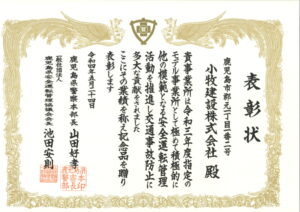 表彰状
鹿児島市郡元一丁目一番二号
小牧建設株式会社 殿
貴事業所は令和三年度指定の
モデル事業所として極めて積極的に
他の模範となる安全運転管理
活動を推進し交通事故防止に
多大な貢献をされました
ここにその業績を称え記念品を贈り
表彰します
令和四年五月二十四日
鹿児島県警察本部長 山田好孝
一般社団法人
鹿児島県安全運転管理協議会会長 池田安則